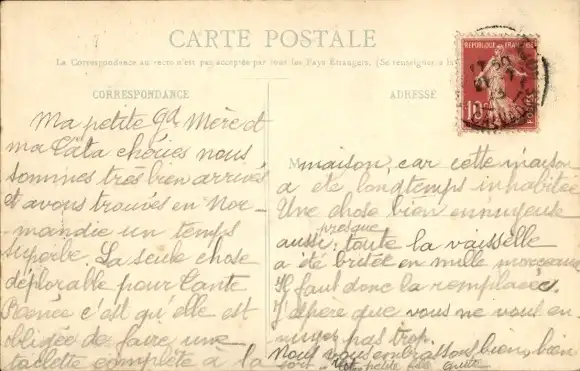 CARTE POSTALE
La Correspondance au recto n'est pas acceptée par tous les Pays Étrangers. (Se renseigner à
CORRESPONDANCE
Ma petite Gd Mère et
ma Tata chéries nous
sommes très bien arrivés
et avons trouvés en Nor-
mandie un temps
superbe. La seule chose
déplorable pour Tante
c'est qu'elle est
obligée de faire une
toilette complète a la
ADRESSE
REPUBLIQUE FRANÇAISE
10c
POSTES
M
maison, car cette maison
a été longtemps inhabitée
Une chose bien ennuyeuse
aussi, presque toute la vaisselle
a été brisée en mille morceaux
Il faut donc la remplacée.
J'espère que vous ne vous en-
nuyez pas trop.
Nous vous embrassons bien, bien
fort. petite fille